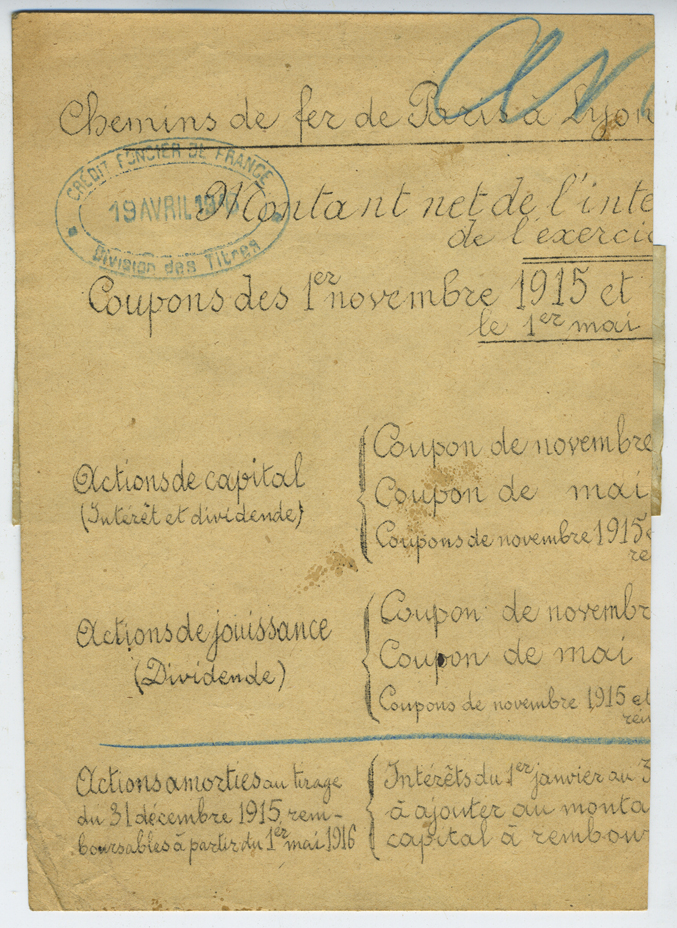 Chemins de fer de Paris à Lyon
CRÉDIT FONCIER DE FRANCE
19 AVRIL
Division des Titres
Montant net de l'inte
de l'exerci
Coupons des 1er novembre 1915 et
le 1er mai
Actions de capital
(Intérêt et dividende)
Coupon de novembre
Coupon de mai
Coupons de novembre 1915
re
Actions de jouissance
(Dividende)
Coupon de novembr
Coupon de mai
Coupons de novembre 1915 et
rem
Actions amorties au tirage
du 31 décembre 1915, rem-
boursables à partir du 1er mai 1916
Intérêts du 1er janvier au 3
à ajouter au monta
capital à rembour